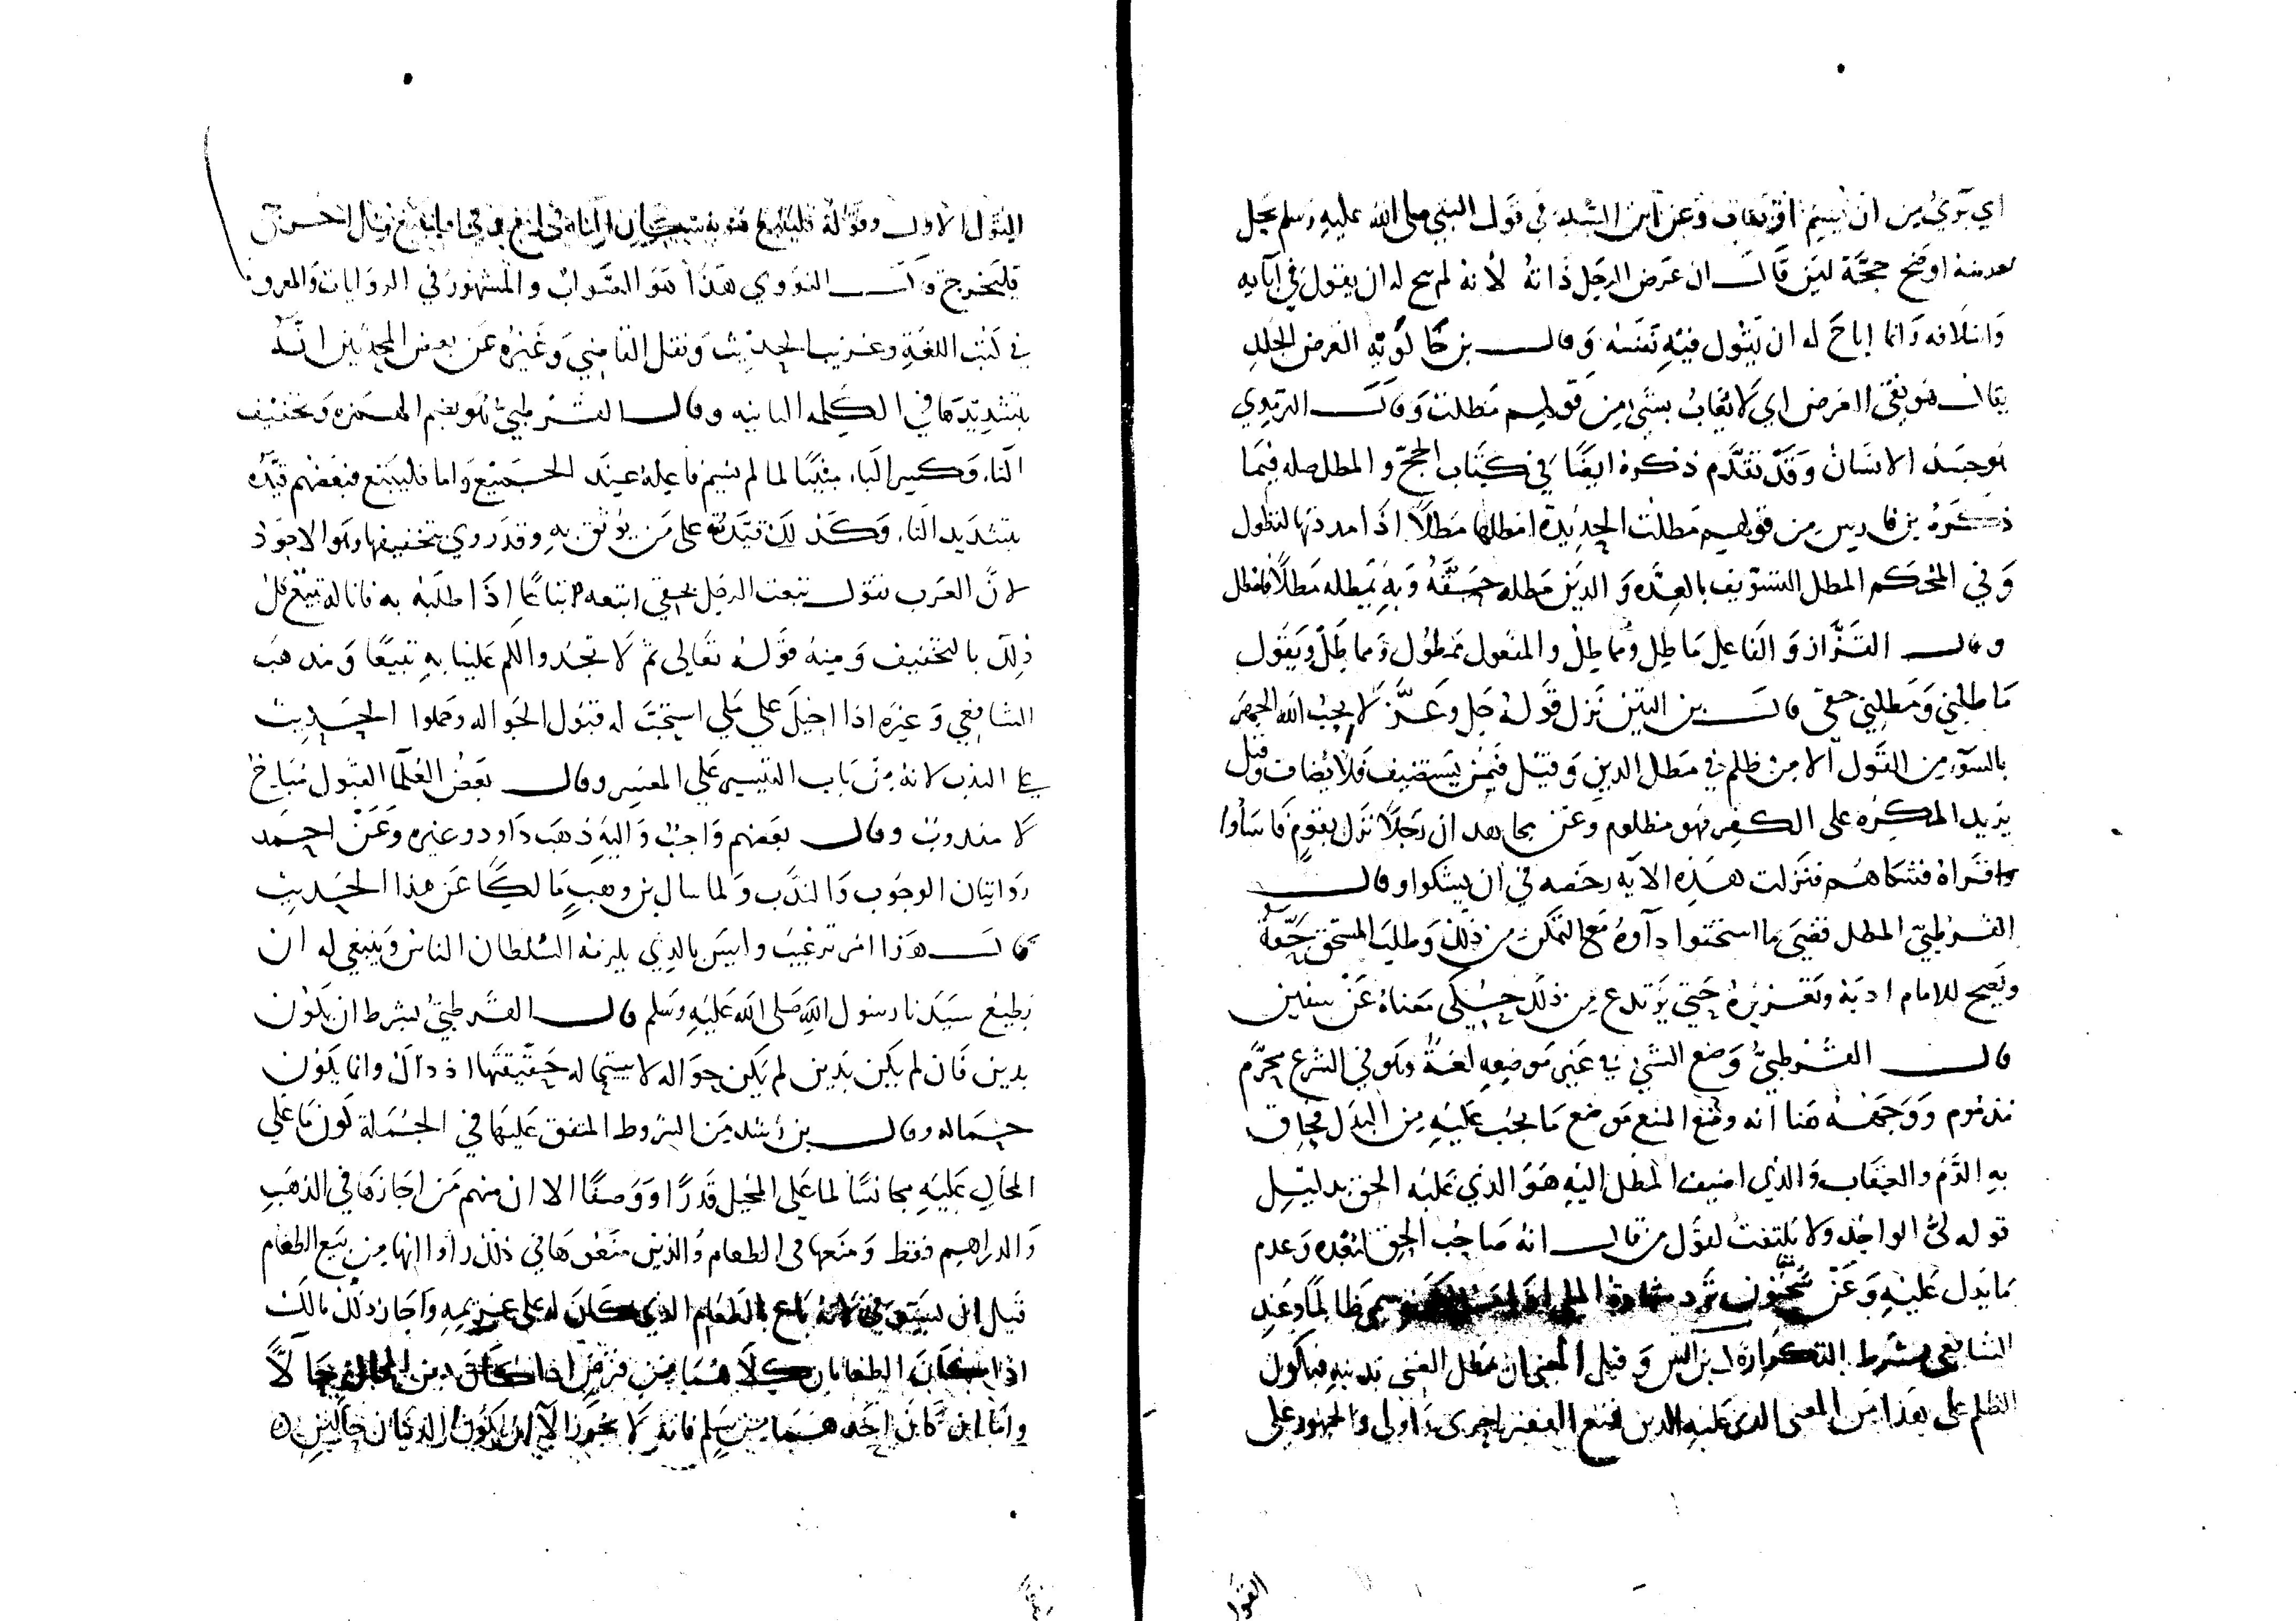 اي بَرّي من ان يُشتم او يعاب وعن ابن السّيد في قول النبي صلى الله عليه وسلم يحل
عرضه اوضح حجّة لمن قال ان عرض الرجل ذاته لانه لم يبح له ان يقول في آبايه
واسلافه وانما اباح له ان يقول فيه نفسه وقال بن خالويه العرض الجلد
يقال هو نقي العرض اي لا يُعاب بشي من قولهم مطلت وقال الترمذي
هو جسد الانسان وقد تقدم ذكره ايضا في كتاب الحج والمطل اصله فيما
ذكره بن فارس من قولهم مطلت الحديدة امطلها مطلا اذا مددتها لتطول
وفي المحكم المطل التسويف بالعدة والدين مطله حقه وبه يمطله مطلا فامطل
وقال القزاز والفاعل ماطل ومماطل والمفعول ممطول ومماطل ويقول
ماطلني ومطلني حقي قال بن التين نزل قوله جل وعز لا يحب الله الجهر
بالسوء من القول الا من ظلم في مطل الدين وقيل فيمن يستضيف فلا يضاف وقيل
يريد المكره على الكفر فهو مظلوم وعن مجاهد ان رجلا نزل بقوم فاساوا
قراه فشكاهم فنزلت هذه الايه رخصه في ان يشكوا وقال
القرطبي المطل قضي ما استحق اداوه مع التمكن من ذلك وطلب المستحق حقه
ويصح للامام ادبه وتعزيره حتى يرتدع من ذلك حُكي معناه عن سفين
قال القرطبي وضع الشي في غير موضعه لغة وهو في الشرع محرّم
مذموم ووجهه هنا انه وضع المنع موضع ما يجب عليه من البذل فحاق
به الذم والعقاب والذي اضيف المطل اليه هو الذي عليه الحق بدليل
قوله ليُّ الواجد ولا يلتفت لقول من قال انه صاحب الحق لبعده وعدم
ما يدل عليه وعن سحنون ترد شهادة الملي اذا سمي ظالما وعند
الشافعي بشرط التكرار بن التين وقيل المعنى ان مطل الغني بدينه فيكون
الظلم على هذا من المعسر الذي عليه الدين فمنع الفقير احرى واولى والجمهور على
القول
القول الاول وقوله فليتبع هو باسكان التاء في اتبع وفي فليتبع مثل اخرج
فليخرج قال النووي هذا هو الصواب والمشهور في الروايات والمعروف
في كتب اللغة وغريب الحديث ونقل القاضي وغيره عن بعض المحدثين انه
يشدّدها في الكلمه الثانيه وقال القرطبي هو بضم الهمزه وتخفيف
التاء وكسر الباء مبنيا لما لم يسم فاعله عند الجميع واما فليتبع فبعضهم قيده
بتشديد التاء وكذلك قيدته على من يوثق به وقد روي بتخفيفها وهو الاجود
لان العرب تقول تبعت الرجل بحقي اتبعه تباعا اذا طلبته به فانا له تبيع كل
ذلك بالتخفيف ومنه قوله تعالى ثم لا تجدوا لكم علينا به تبيعا ومذهب
الشافعي وغيره اذا احيل على ملي استحب له قبول الحواله وحملوا الحديث
على الندب لانه من باب التيسير على المعسر وقال بعض العلما القبول مباح
لا مندوب وقال بعضهم واجب واليه ذهب داود وغيره وعن احمد
روايتان الوجوب والندب ولما سال بن وهب مالكا عن هذا الحديث
قال هذا امر ترغيب وليس بالذي يلزمه السلطان الناس وينبغي له ان
يطيع سيدنا رسول الله صلى الله عليه وسلم قال القرطبي بشرط ان يكون
بدين فان لم يكن بدين لم يكن حواله لاستحاله حقيقتها اذ ذاك وانما يكون
حماله وقال بن رشد من الشروط المتفق عليها في الجملة كون ما على
المحال عليه مجانسا لما على المحيل قدرا ووصفا الا ان منهم من اجازها في الذهب
والدراهم فقط ومنعها في الطعام والذين منعوها في ذلك راوا انها من بيع الطعام
قبل ان يستوفى لانه باع الطعام الذي كان له على غريمه واجاز ذلك مالك
اذا كان الطعامان كلاهما من قرض اذا كان دين المحال حالّا
واما ان كان احدهما من سلم فانه لا يجوز الا ان يكون الدينان حالين